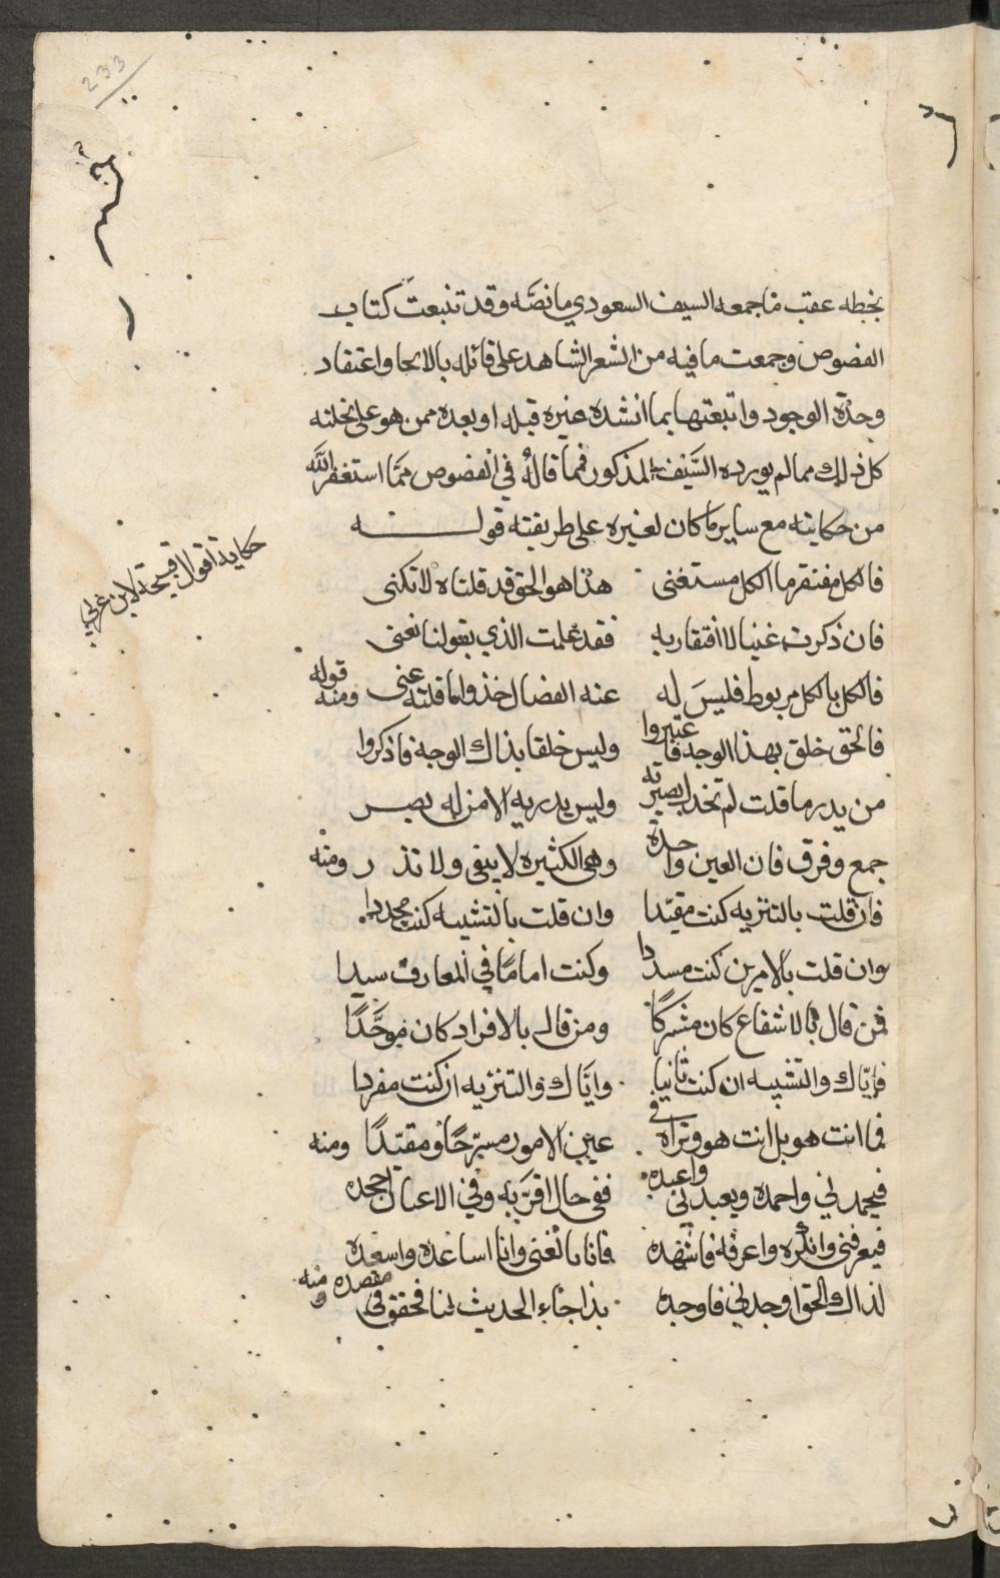 233
بخطه عقب ما جمعه السيف السعودي ما نصه وقد تتبعت كتاب
الفصوص وجمعت ما فيه من الشعر الشاهد على قائله بالالحاد واعتقاد
وحدة الوجود واتبعتها بما انشده غيره قبله او بعده ممن هو على نحلته
كل ذلك مما لم يورده السيف المذكور فمما قاله في الفصوص مما استغفر الله
من حكايته مع ساير ما كان لغيره على طريقته قولـــــه
فالكل مفتقر ما الكل مستغنى هذا هو الحق قد قلناه لا نكنى
فان ذكرت غنيا لا افتقار به فقد علمت الذي بقولنا نعنى
فالكل بالكل مربوط فليس له عنه انفصال خذوا ما قلته عنى ومنه قوله
فالحق خلق بهذا الوجه فاعتبروا وليس خلقا بذاك الوجه فاذكروا
من يدر ما قلت لم تخذل بصيرته وليس يدريه الا من له بصر
جمع وفرق فان العين واحدة وهي الكثيره لا يبقى ولا تذر ومنه
فان قلت بالتنزيه كنت مقيدا وان قلت بالتشبيه كنت محددا
وان قلت بالامرين كنت مسددا وكنت اماما في المعارف سيدا
فمن قال بالاشفاع كان مشركا ومن قال بالافراد كان موحدا
فاياك والتشبيه ان كنت ثانيا واياك والتنزيه ان كنت مفردا
فما انت هو بل انت هو وتراه في عين الامور مسرحا ومقيدا ومنه
فيحمدني واحمده ويعبدني واعبده ففي حال اقر به وفي الاعيان اجحده
فيعرفني وانكره واعرفه فاشهده فانا بالغنى وانا اساعده واسعده
لذاك الحق اوجدني فاوجده بذا جاء الحديث لنا فحقق في مقصده ومنه
حكاية اقوال قبيحة لابن عربي